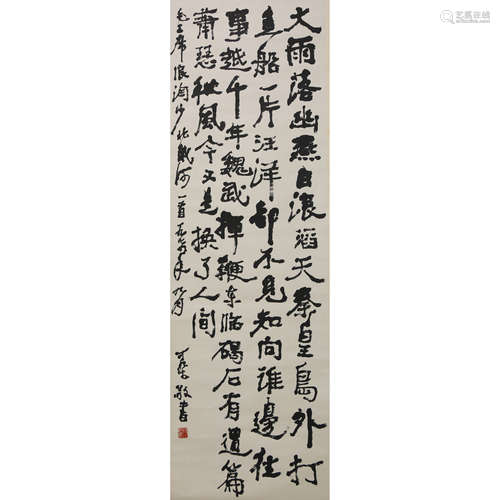 大雨落幽燕白浪滔天秦皇島外打
魚船一片汪洋都不見知向谁邊往
事越千年魏武揮鞭東临碣石有遺篇
蕭瑟秋風今又是换了人间
毛主席浪淘沙北戴河一首
敬書